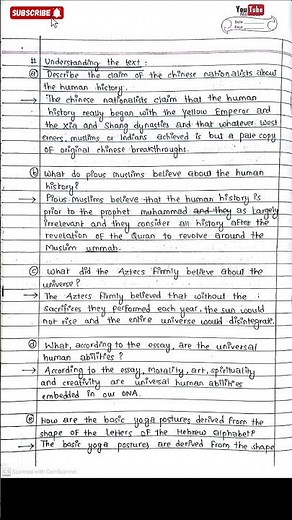 SUBSCRIBE
You Tube
Date
Page
# Understanding the text :
ⓐ Describe the claim of the chinese nationalists about
the human history.
→ The chinese nationalists claim that the human
history really began with the Yellow Emperor and
the Xia and Shang dynasties and that whatever West
erners, muslims or Indians achieved is but a pale copy
of original chinese breakthroughs.
ⓑ What do pious muslims believe about the human
history?
→ Pious muslims believe that the human history is
prior to the prophet muhammad and they as largely
irrelevant and they consider all history after the
revelation of the Quran to revolve around the
Muslim ummah.
ⓒ What did the Aztecs firmly believe about the
universe?
→ The Aztecs firmly believed that without the
sacrifices they performed each year, the sun would
not rise and the entire universe would disintegrate.
ⓓ What, according to the essay, are the universal
human abilities?
→ According to the essay, morality, art, spirituality
and creativity are universal human abilities
embedded in our DNA.
ⓔ How are the basic yoga postures derived from the
shape of the letters of the Hebrew alphabet?
→ The basic yoga postures are derived from the shape
CS Scanned with CamScanner